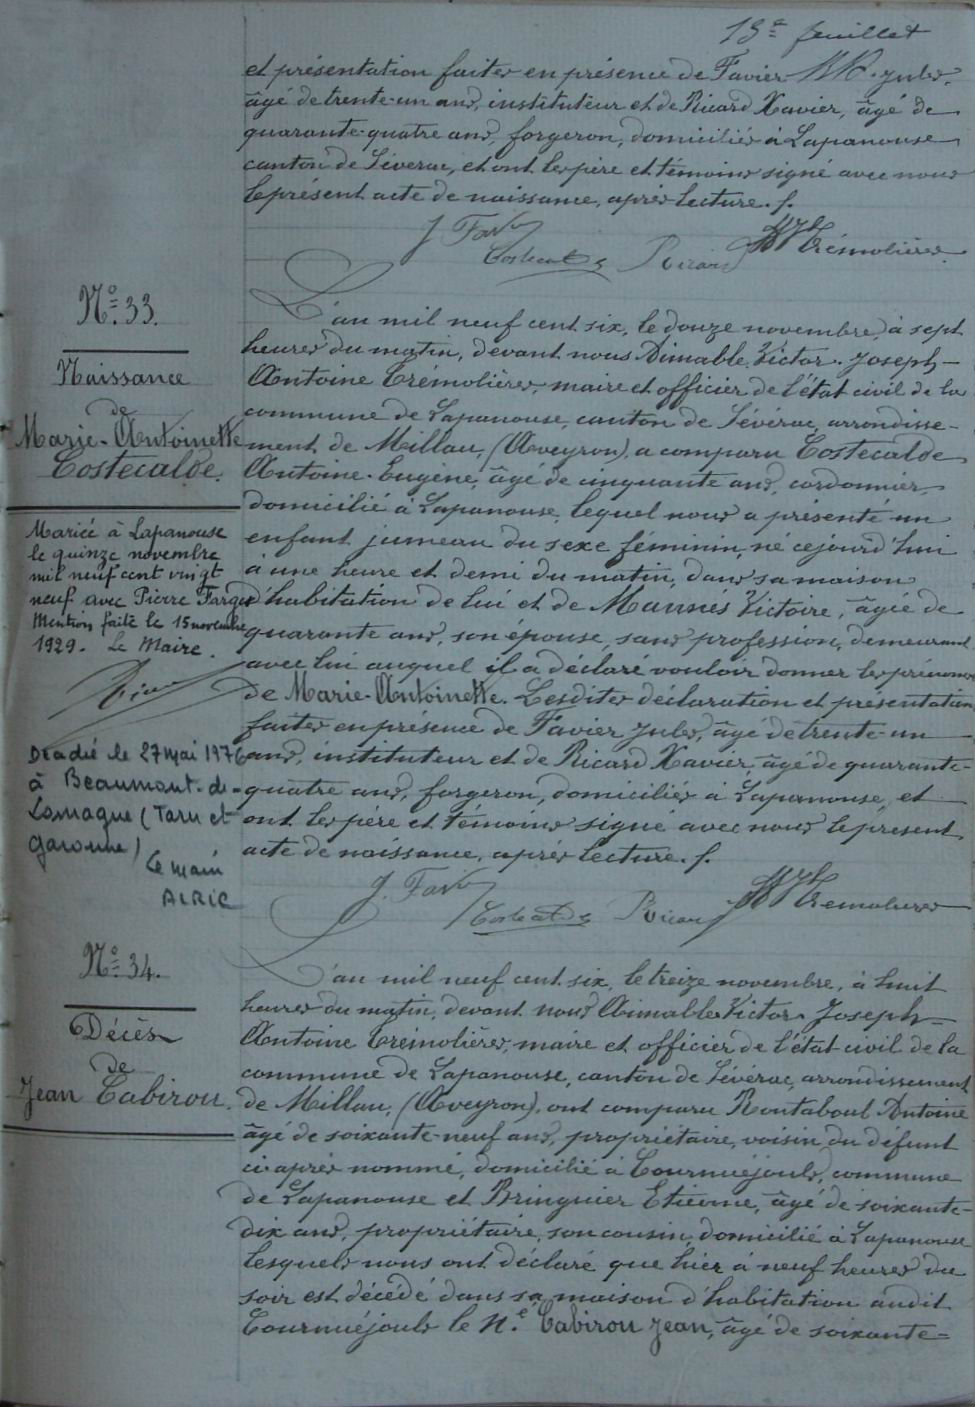 13e feuillet
et présentation faites en présence de Favier Jules,
âgé de trente-un ans, instituteur et de Ricard Xavier, âgé de
quarante-quatre ans, forgeron, domiciliés à Lapanouse
canton de Séverac, et ont les père et témoins signé avec nous
le présent acte de naissance, après lecture. /.
J Favier
Costecalde
Ricard
Trémolières
No. 33.
Naissance
de
Marie-Antoinette
Costecalde.
Mariée à Lapanouse
le quinze novembre
mil neuf cent vingt
neuf avec Pierre Farges
Mention faite le 15 novembre
1929. Le Maire.
Décédée le 27 mai 1976
à Beaumont-de-
Lomagne (Tarn et
Garonne)
Le maire
ALRIC
L'an mil neuf cent six, le douze novembre, à sept
heures du matin, devant nous Aimable Victor Joseph-
Antoine Trémolières, maire et officier de l'état civil de la
commune de Lapanouse, canton de Sévérac, arrondisse-
ment de Millau, (Aveyron), a comparu Costecalde
Antoine-Eugène, âgé de cinquante ans, cordonnier,
domicilié à Lapanouse, lequel nous a présenté un
enfant jumeau du sexe féminin, né cejourd'hui
à une heure et demi du matin, dans sa maison
d'habitation de lui et de Maunés Victoire, âgée de
quarante ans, son épouse, sans profession, demeurant
avec lui auquel il a déclaré vouloir donner les prénoms
de Marie-Antoinette. Lesdites déclaration et présentation
faites en présence de Favier Jules, âgé de trente-un
ans, instituteur et de Ricard Xavier, âgé de quarante-
quatre ans, forgeron, domiciliés à Lapanouse, et
ont les père et témoins signé avec nous le présent
acte de naissance, après lecture. /.
J. Favier
Costecalde
Ricard
Trémolières
No. 34.
Décès
de
Jean Cabirou.
L'an mil neuf cent six, le treize novembre, à huit
heures du matin, devant nous Aimable Victor Joseph-
Antoine Trémolières, maire et officier de l'état civil de la
commune de Lapanouse, canton de Sévérac, arrondissement
de Millau, (Aveyron), ont comparu Rontaboul Antoine
âgé de soixante-neuf ans, propriétaire, voisin du défunt
ci-après nommé, domicilié à Tournuéjouls, commune
de Lapanouse et Bringuier Etienne, âgé de soixante-
dix ans, propriétaire, son cousin, domicilié à Lapanouse
lesquels nous ont déclaré que hier à neuf heures du
soir est décédé dans sa maison d'habitation audit
Tournuéjouls le n.é Cabirou Jean, âgé de soixante-